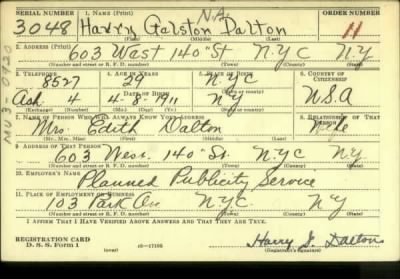 SERIAL NUMBER 1. NAME (Print) ORDER NUMBER
3048 Harry Galston Dalton N.A. 11
(First) (Middle) (Last)
2. ADDRESS (Print)
603 West 140th St N.Y.C. N.Y
(Number and street or R. F. D. number) (Town) (County) (State)
3. TELEPHONE 4. AGE IN YEARS 5. PLACE OF BIRTH 6. COUNTRY OF CITIZENSHIP
8527 29 N.Y.C
DATE OF BIRTH
Aud. 4 4-8-1911 NY U.S.A
(Exchange) (Number) (Mo.) (Day) (Yr.) (State or country)
7. NAME OF PERSON WHO WILL ALWAYS KNOW YOUR ADDRESS 8. RELATIONSHIP OF THAT PERSON
Mrs. Edith Dalton Wife
(Mr., Mrs., Miss) (First) (Middle) (Last)
9. ADDRESS OF THAT PERSON
603 West. 140th St. N.Y.C N.Y
(Number and street or R. F. D. number) (Town) (County) (State)
10. EMPLOYER'S NAME
Planned Publicity Service
11. PLACE OF EMPLOYMENT OR BUSINESS
103 Park Ave N.Y.C. NY
(Number and street or R. F. D. number) (Town) (County) (State)
I AFFIRM THAT I HAVE VERIFIED ABOVE ANSWERS AND THAT THEY ARE TRUE.
REGISTRATION CARD
D. S. S. Form 1 (over) 16—17105 Harry G. Dalton